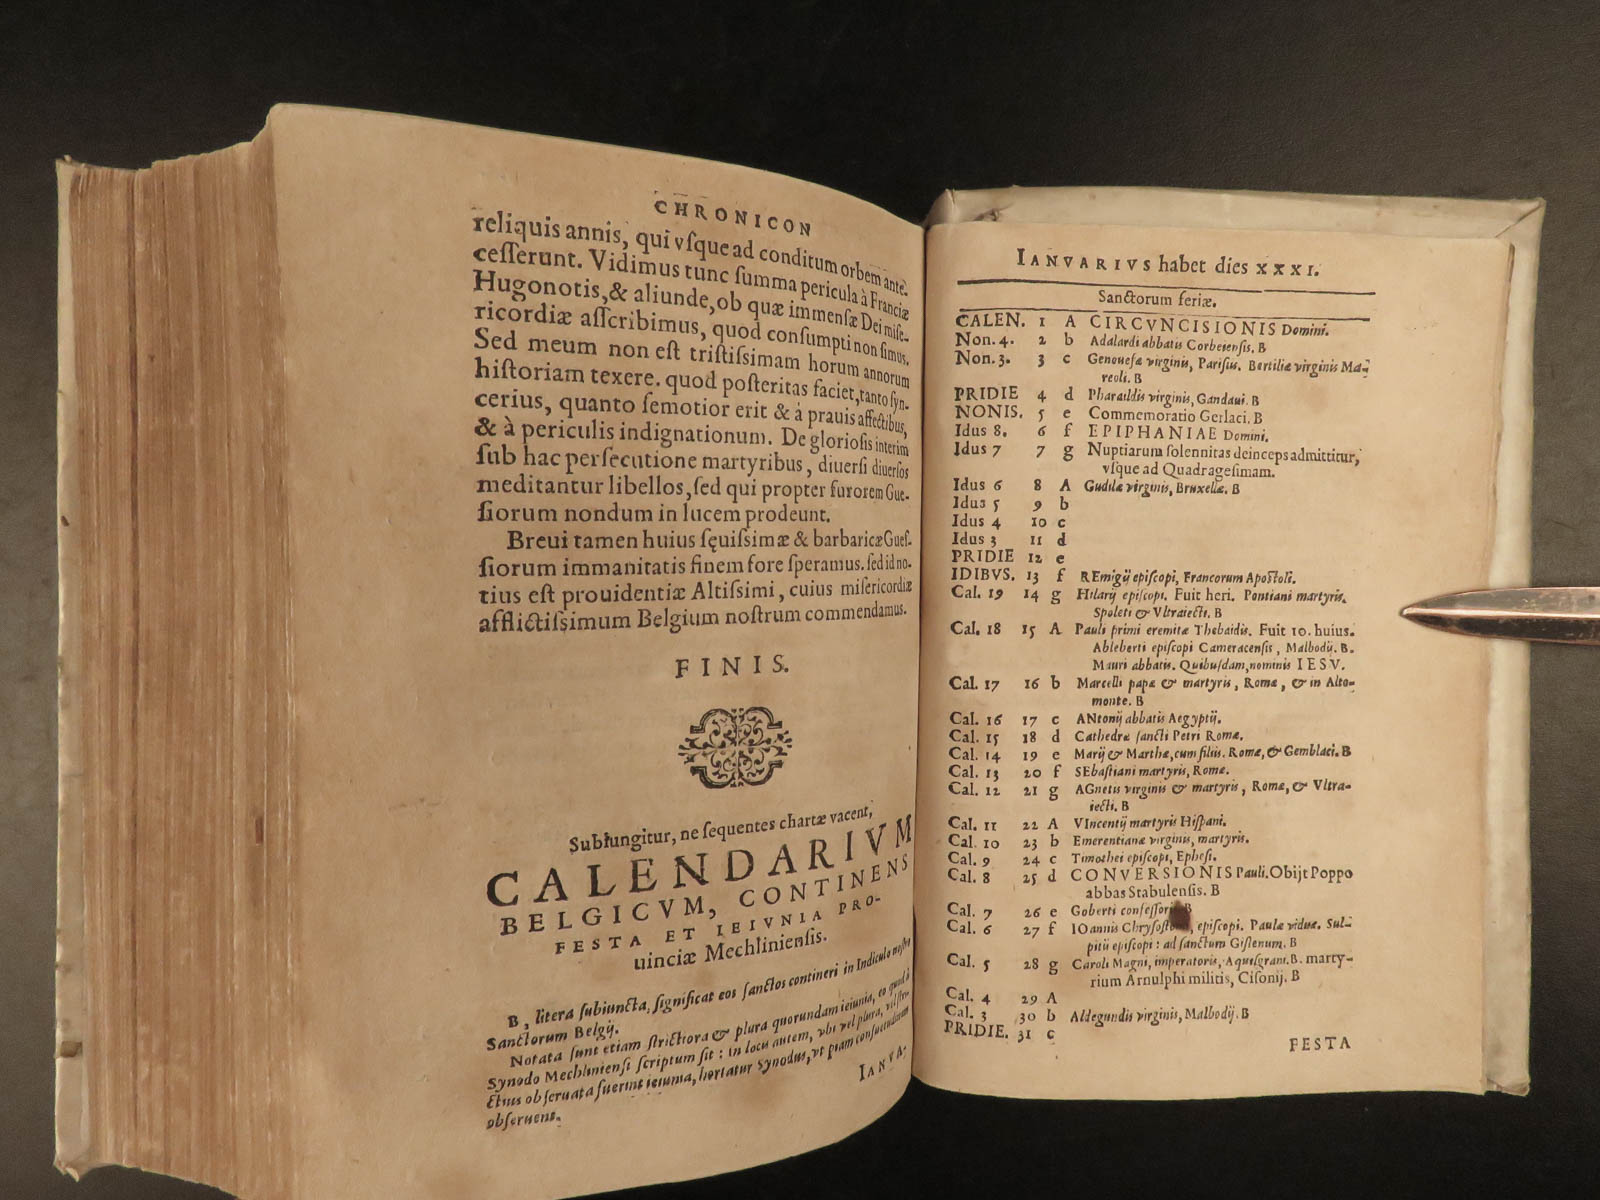 CHRONICON
reliquis annis, qui vſque ad conditum orbem ante-
ceſſerunt. Vidimus tunc ſumma pericula à Franciæ
Hugonotis, & aliunde, ob quæ immenſæ Dei miſe-
ricordiæ aſſcribimus, quod conſumpti non ſimus.
Sed meum non eſt triſtiſsimam horum annorum
hiſtoriam texere. quod poſteritas faciet, tanto ſyn-
cerius, quanto ſemotior erit & à prauis affectibus,
& à periculis indignationum. De glorioſis interim
ſub hac perſecutione martyribus, diuerſi diuerſos
meditantur libellos, ſed qui propter furorem Gue-
ſiorum nondum in lucem prodeunt.
Breui tamen huius ſęuiſsimæ & barbaricæ Gueſ-
ſiorum immanitatis finem fore ſperamus. ſed id no-
tius eſt prouidentiæ Altiſsimi, cuius miſericordiæ
afflictiſsimum Belgium noſtrum commendamus.
FINIS.
Subiungitur, ne ſequentes chartæ vacent,
CALENDARIVM
BELGICVM, CONTINENS
FESTA ET IEIVNIA PRO-
uinciæ Mechlinienſis.
B, litera ſubiuncta, ſignificat eos ſanctos contineri in Indiculo noſtro
Sanctorum Belgij.
Notata ſunt etiam ſtrictiora & plura quorundam ieiunia, eo quod à
Synodo Mechlinienſi ſcriptum ſit : in locis autem, vbi vel plura, vel ſtri-
ctius obſeruata fuerint ieiunia, hortatur Synodus, vt piam conſuetudinem
obſeruent.
IANVA-
IANVARIVS habet dies XXXI.
Sanctorum feriæ.
CALEN. 1 A CIRCVNCISIONIS Domini.
Non. 4. 2 b Adalardi abbatis Corbeienſis. B
Non. 3. 3 c Genouefæ virginis, Pariſius. Bertiliæ virginis Ma-
reoli. B
PRIDIE 4 d Pharaildis virginis, Gandaui. B
NONIS. 5 e Commemoratio Gerlaci. B
Idus 8. 6 f EPIPHANIAE Domini.
Idus 7 7 g Nuptiarum ſolennitas deinceps admittitur,
vſque ad Quadrageſimam.
Idus 6 8 A Gudilæ virginis, Bruxellæ. B
Idus 5 9 b
Idus 4 10 c
Idus 3 11 d
PRIDIE 12 e
IDIBVS. 13 f REmigij epiſcopi, Francorum Apoſtoli.
Cal. 19 14 g Hilarij epiſcopi. Fuit heri. Pontiani martyris.
Spoleti & Vltraiecti. B
Cal. 18 15 A Pauli primi eremitæ Thebaidis. Fuit 10. huius.
Ableberti epiſcopi Cameracenſis, Malbodij. B.
Mauri abbatis. Quibuſdam, nominis IESV.
Cal. 17 16 b Marcelli papæ & martyris, Romæ, & in Alto-
monte. B
Cal. 16 17 c ANtonij abbatis Aegyptij.
Cal. 15 18 d Cathedræ ſancti Petri Romæ.
Cal. 14 19 e Marij & Marthæ, cum filiis. Romæ, & Gemblaci. B
Cal. 13 20 f SEbaſtiani martyris, Romæ.
Cal. 12 21 g AGnetis virginis & martyris, Romæ, & Vltra-
iecti. B
Cal. 11 22 A VIncentij martyris Hiſpani.
Cal. 10 23 b Emerentianæ virginis, martyris.
Cal. 9 24 c Timothei epiſcopi, Epheſi.
Cal. 8 25 d CONVERSIONIS Pauli. Obijt Poppo
abbas Stabulenſis. B
Cal. 7 26 e Goberti confeſſoris B
Cal. 6 27 f IOannis epiſcopi. Paulæ viduæ. Sul-
pitij epiſcopi : ad ſanctum Giſlenum. B
Cal. 5 28 g Caroli Magni, imperatoris, Aquiſgrani. B. marty-
rium Arnulphi militis, Ciſonij. B
Cal. 4 29 A
Cal. 3 30 b Aldegundis virginis, Malbodij. B
PRIDIE. 31 c
FESTA